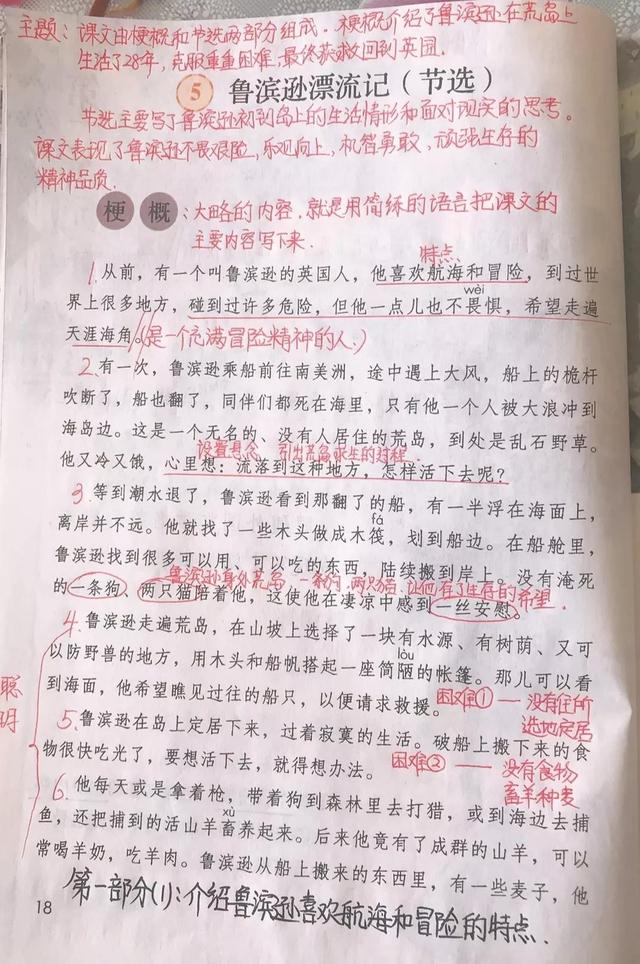 主题：课文由梗概和节选两部分组成。梗概介绍了鲁滨逊在荒岛上
生活了28年，克服重重困难，最终获救回到英国。
5 鲁滨逊漂流记（节选）
节选主要写了鲁滨逊初到岛上的生活情形和面对现实的思考。
课文表现了鲁滨逊不畏艰险，乐观向上，机智勇敢，顽强生存的
精神品质.
梗概：大略的内容，就是用简练的语言把课文的
主要内容写下来.
特点.
1.从前，有一个叫鲁滨逊的英国人，他喜欢航海和冒险，到过世
wèi
界上很多地方，碰到过许多危险，但他一点儿也不畏惧，希望走遍
天涯海角。(是一个充满冒险精神的人.)
2.有一次，鲁滨逊乘船前往南美洲，途中遇上大风，船上的桅杆
吹断了，船也翻了，同伴们都死在海里，只有他一个人被大浪冲到
海岛边。这是一个无名的、没有人居住的荒岛，到处是乱石野草。
设置悬念 引出荒岛求生的过程.
他又冷又饿，心里想：流落到这种地方，怎样活下去呢？
3.等到潮水退了，鲁滨逊看到那翻了的船，有一半浮在海面上，
fá
离岸并不远。他就找了一些木头做成木筏，划到船边。在船舱里，
鲁滨逊找到很多可以用、可以吃的东西，陆续搬到岸上。没有淹死
鲁滨逊身处荒岛，一条狗，两只猫，让他有了生存的希望.
的一条狗、两只猫陪着他，这使他在凄凉中感到一丝安慰。
4.鲁滨逊走遍荒岛，在山坡上选择了一块有水源、有树荫、又可
lòu
以防野兽的地方，用木头和船帆搭起一座简陋的帐篷。那儿可以看
到海面，他希望瞧见过往的船只，以便请求救援。
困难① — 没有住所
选地定居
聪明
5.鲁滨逊在岛上定居下来，过着寂寞的生活。破船上搬下来的食
物很快吃光了，要想活下去，就得想办法。
困难② — 没有食物
畜羊种麦
6.他每天或是拿着枪，带着狗到森林里去打猎，或到海边去捕
xù
鱼，还把捕到的活山羊畜养起来。后来他竟有了成群的山羊，可以
常喝羊奶，吃羊肉。鲁滨逊从船上搬来的东西里，有一些麦子，他
18
第一部分(1)：介绍鲁滨逊喜欢航海和冒险的特点.